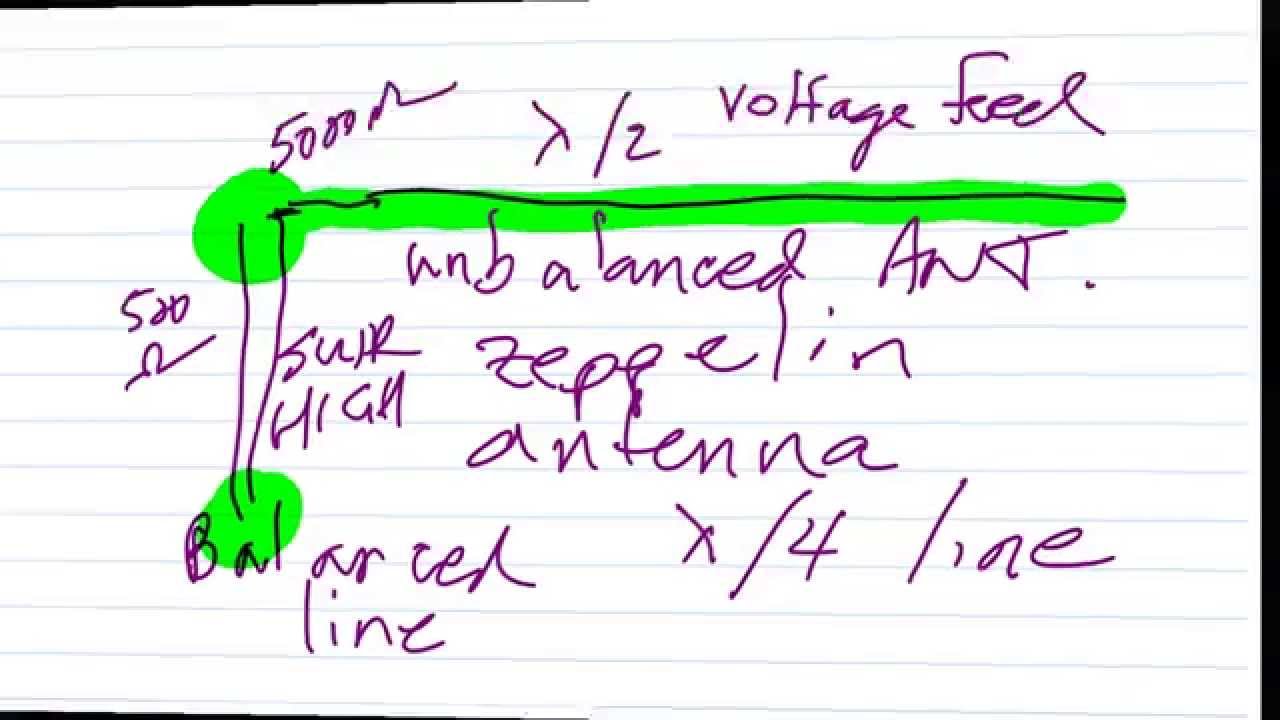 5000 Ω λ/2 voltage feed
unbalanced ANT.
500
Ω
SWR
HIGH
zeppelin
antenna
λ/4 line
Balanced
line